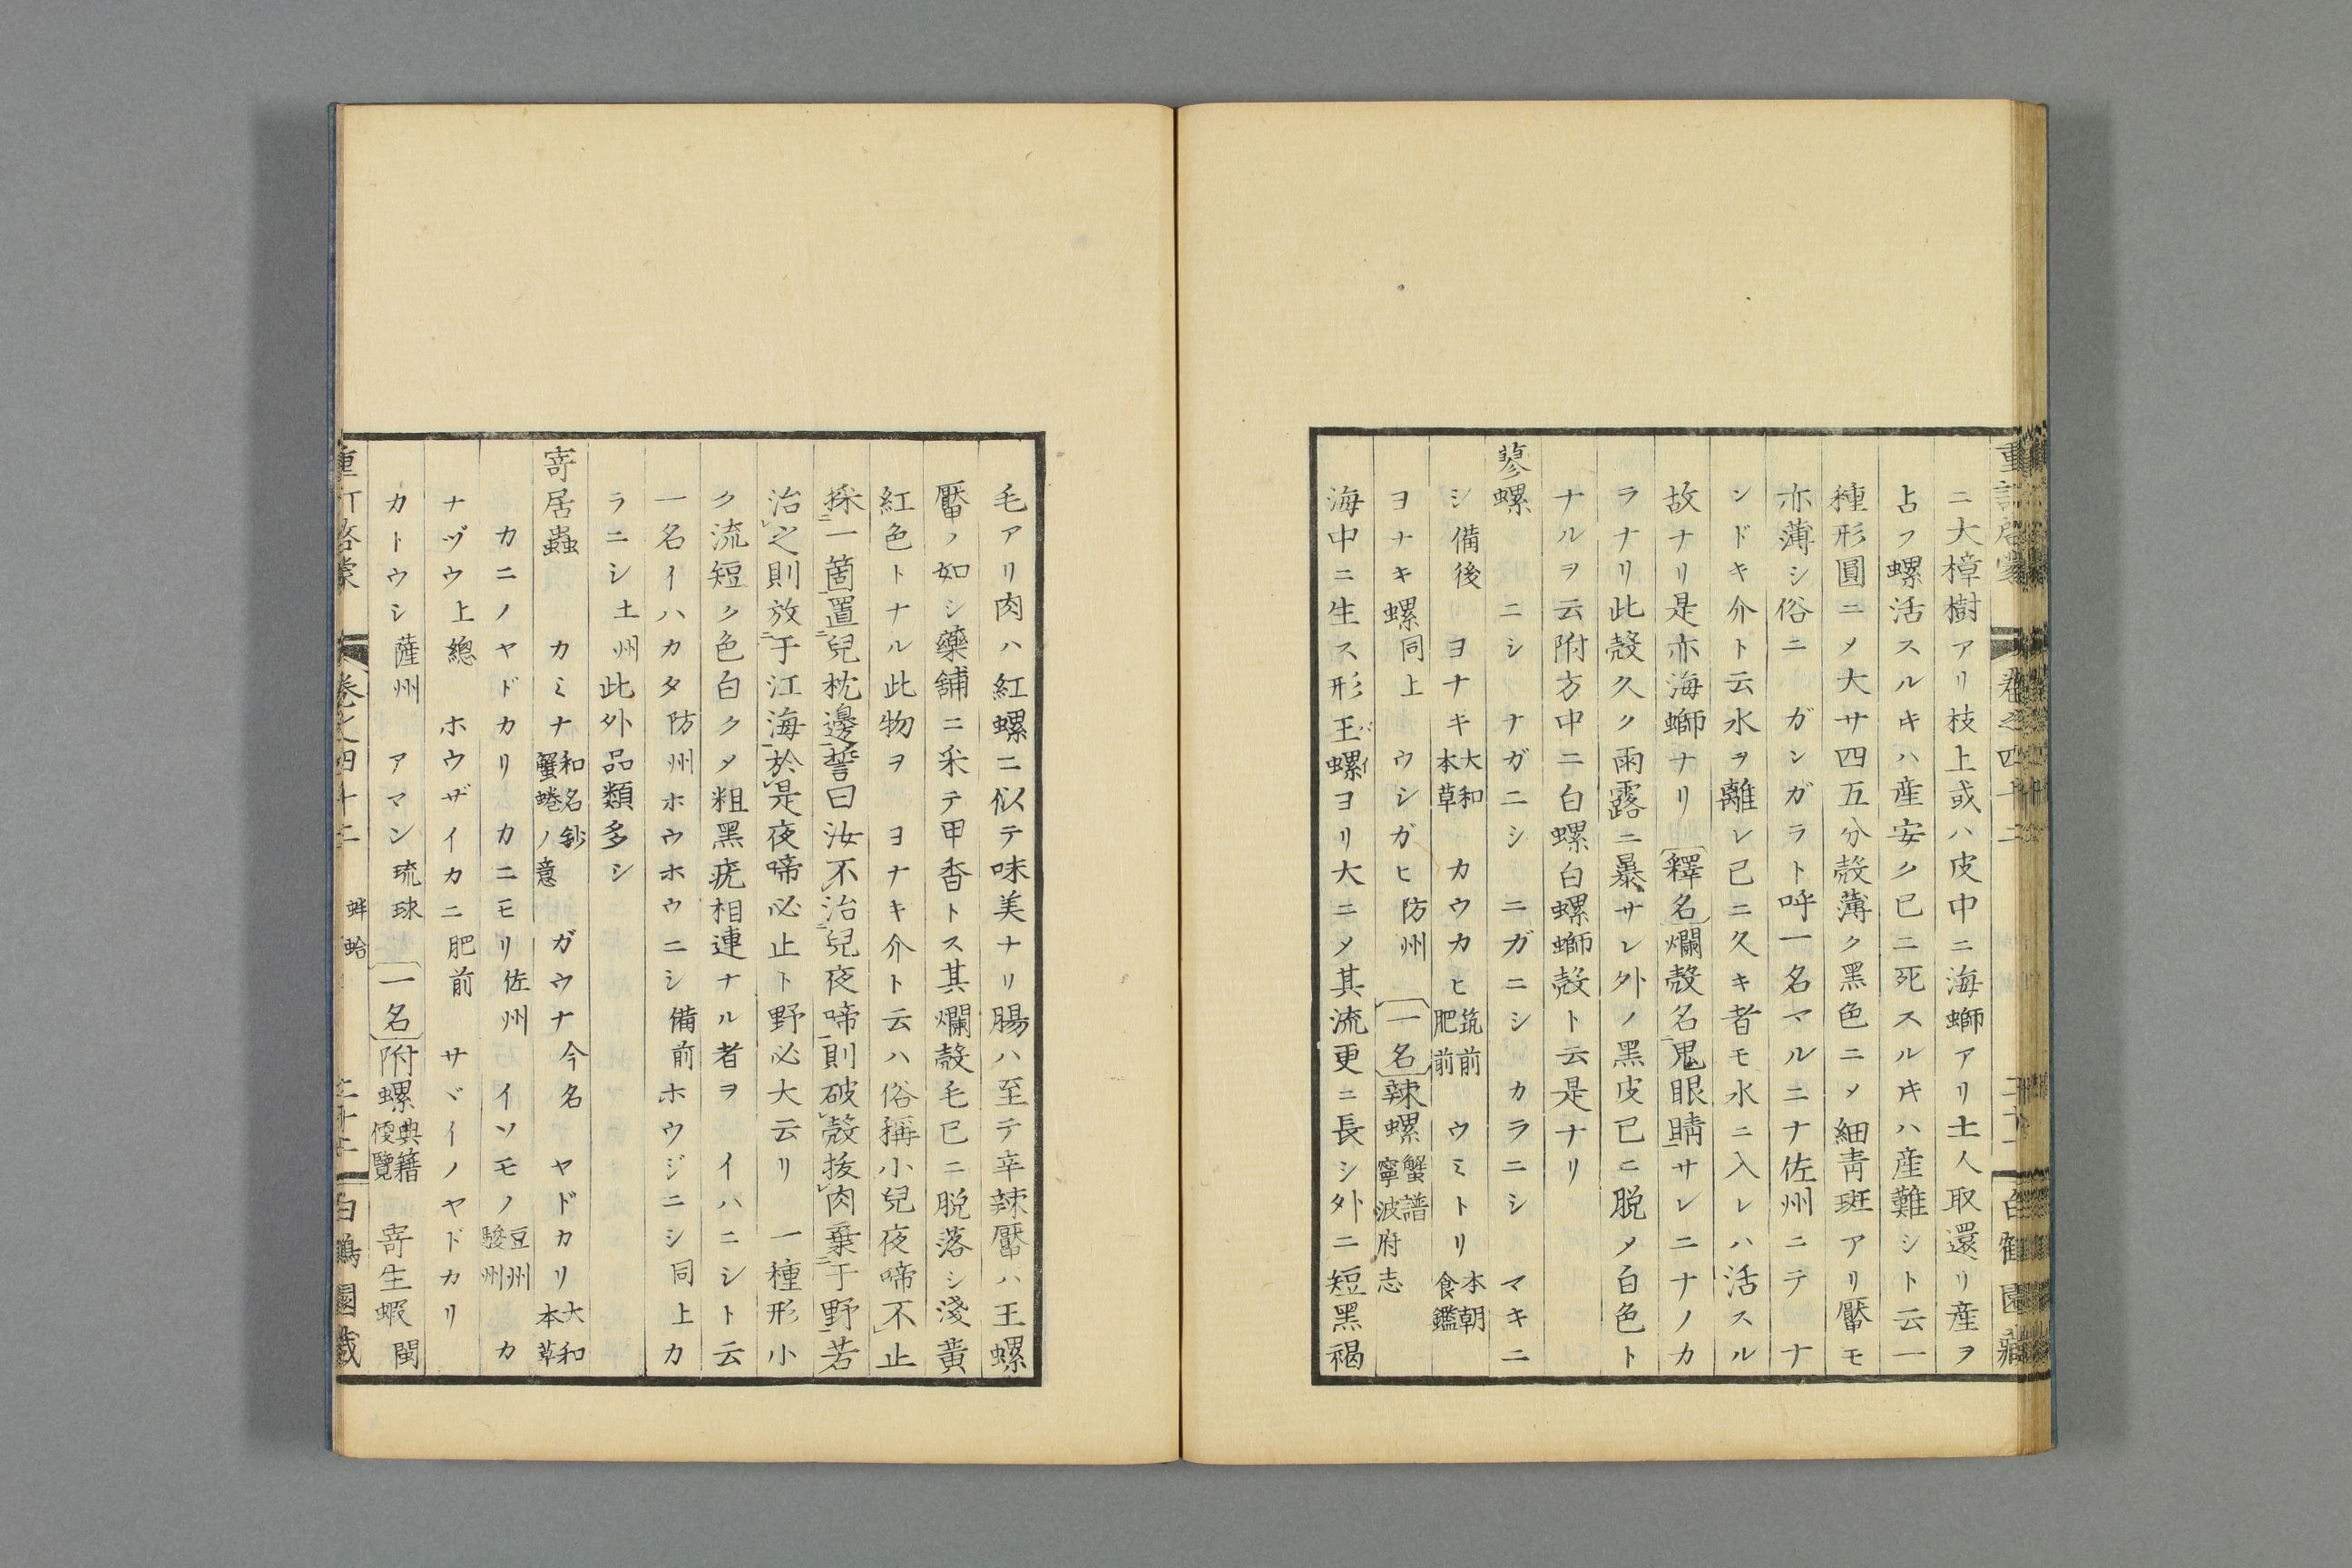 重訂啓蒙 卷之四十二 二十一 白鶴園藏
ニ大樟樹アリ枝上或ハ皮中ニ海螄アリ土人取還リ産ヲ
占フ螺活スルキハ産安ク已ニ死スルキハ産難シト云一
種形圓ニメ大サ四五分殼薄ク黑色ニメ細靑斑アリ厴モ
亦薄シ俗ニ ガンガラト呼一名マルニナ佐州ニテ ナ
シドキ介ト云水ヲ離レ已ニ久キ者モ水ニ入レハ活スル
故ナリ是亦海螄ナリ 釋名爛殼名鬼眼睛サレニナノカ
ラナリ此殼久ク雨露ニ暴サレ外ノ黑皮已ニ脱メ白色ト
ナルヲ云附方中ニ白螺白螺螄殼ト云是ナリ
蓼螺 ニシ ナガニシ ニガニシ カラニシ マキニ
シ備後 ヨナキ大和本草 カウカヒ筑前肥前 ウミトリ本朝食鑑
ヨナキ螺同上 ウシガヒ防州 一名辣螺蟹譜寧波府志
海中ニ生ス形王螺バイヨリ大ニメ其流更ニ長シ外ニ短黑褐
毛アリ肉ハ紅螺ニ似テ味美ナリ腸ハ至テ辛辣厴ハ王螺
厴ノ如シ藥舖ニ采テ甲香トス其爛殼毛已ニ脱落シ淺黃
紅色トナル此物ヲ ヨナキ介ト云ハ俗稱小兒夜啼不止
採一箇置兒枕邊誓曰汝不治兒夜啼則破殼拔肉棄于野若
治之則放于江海於是夜啼必止ト野必大云リ 一種形小
ク流短ク色白クメ粗黑疣相連ナル者ヲ イハニシト云
一名イハカタ防州ホウホウニシ備前ホウジニシ同上カ
ラニシ土州此外品類多シ
寄居蟲 カミナ和名鈔蟹蜷ノ意 ガウナ今名 ヤドカリ大和本草
カニノヤドカリ カニモリ佐州 イソモノ豆州駿州 カ
ナヅウ上總 ホウザイカニ肥前 サヾイノヤドカリ
カトウシ薩州 アマン琉球 一名附螺典籍便覽 寄生蝦閩
重訂啓蒙 卷之四十二 蚌蛤 二十二 白鶴園藏